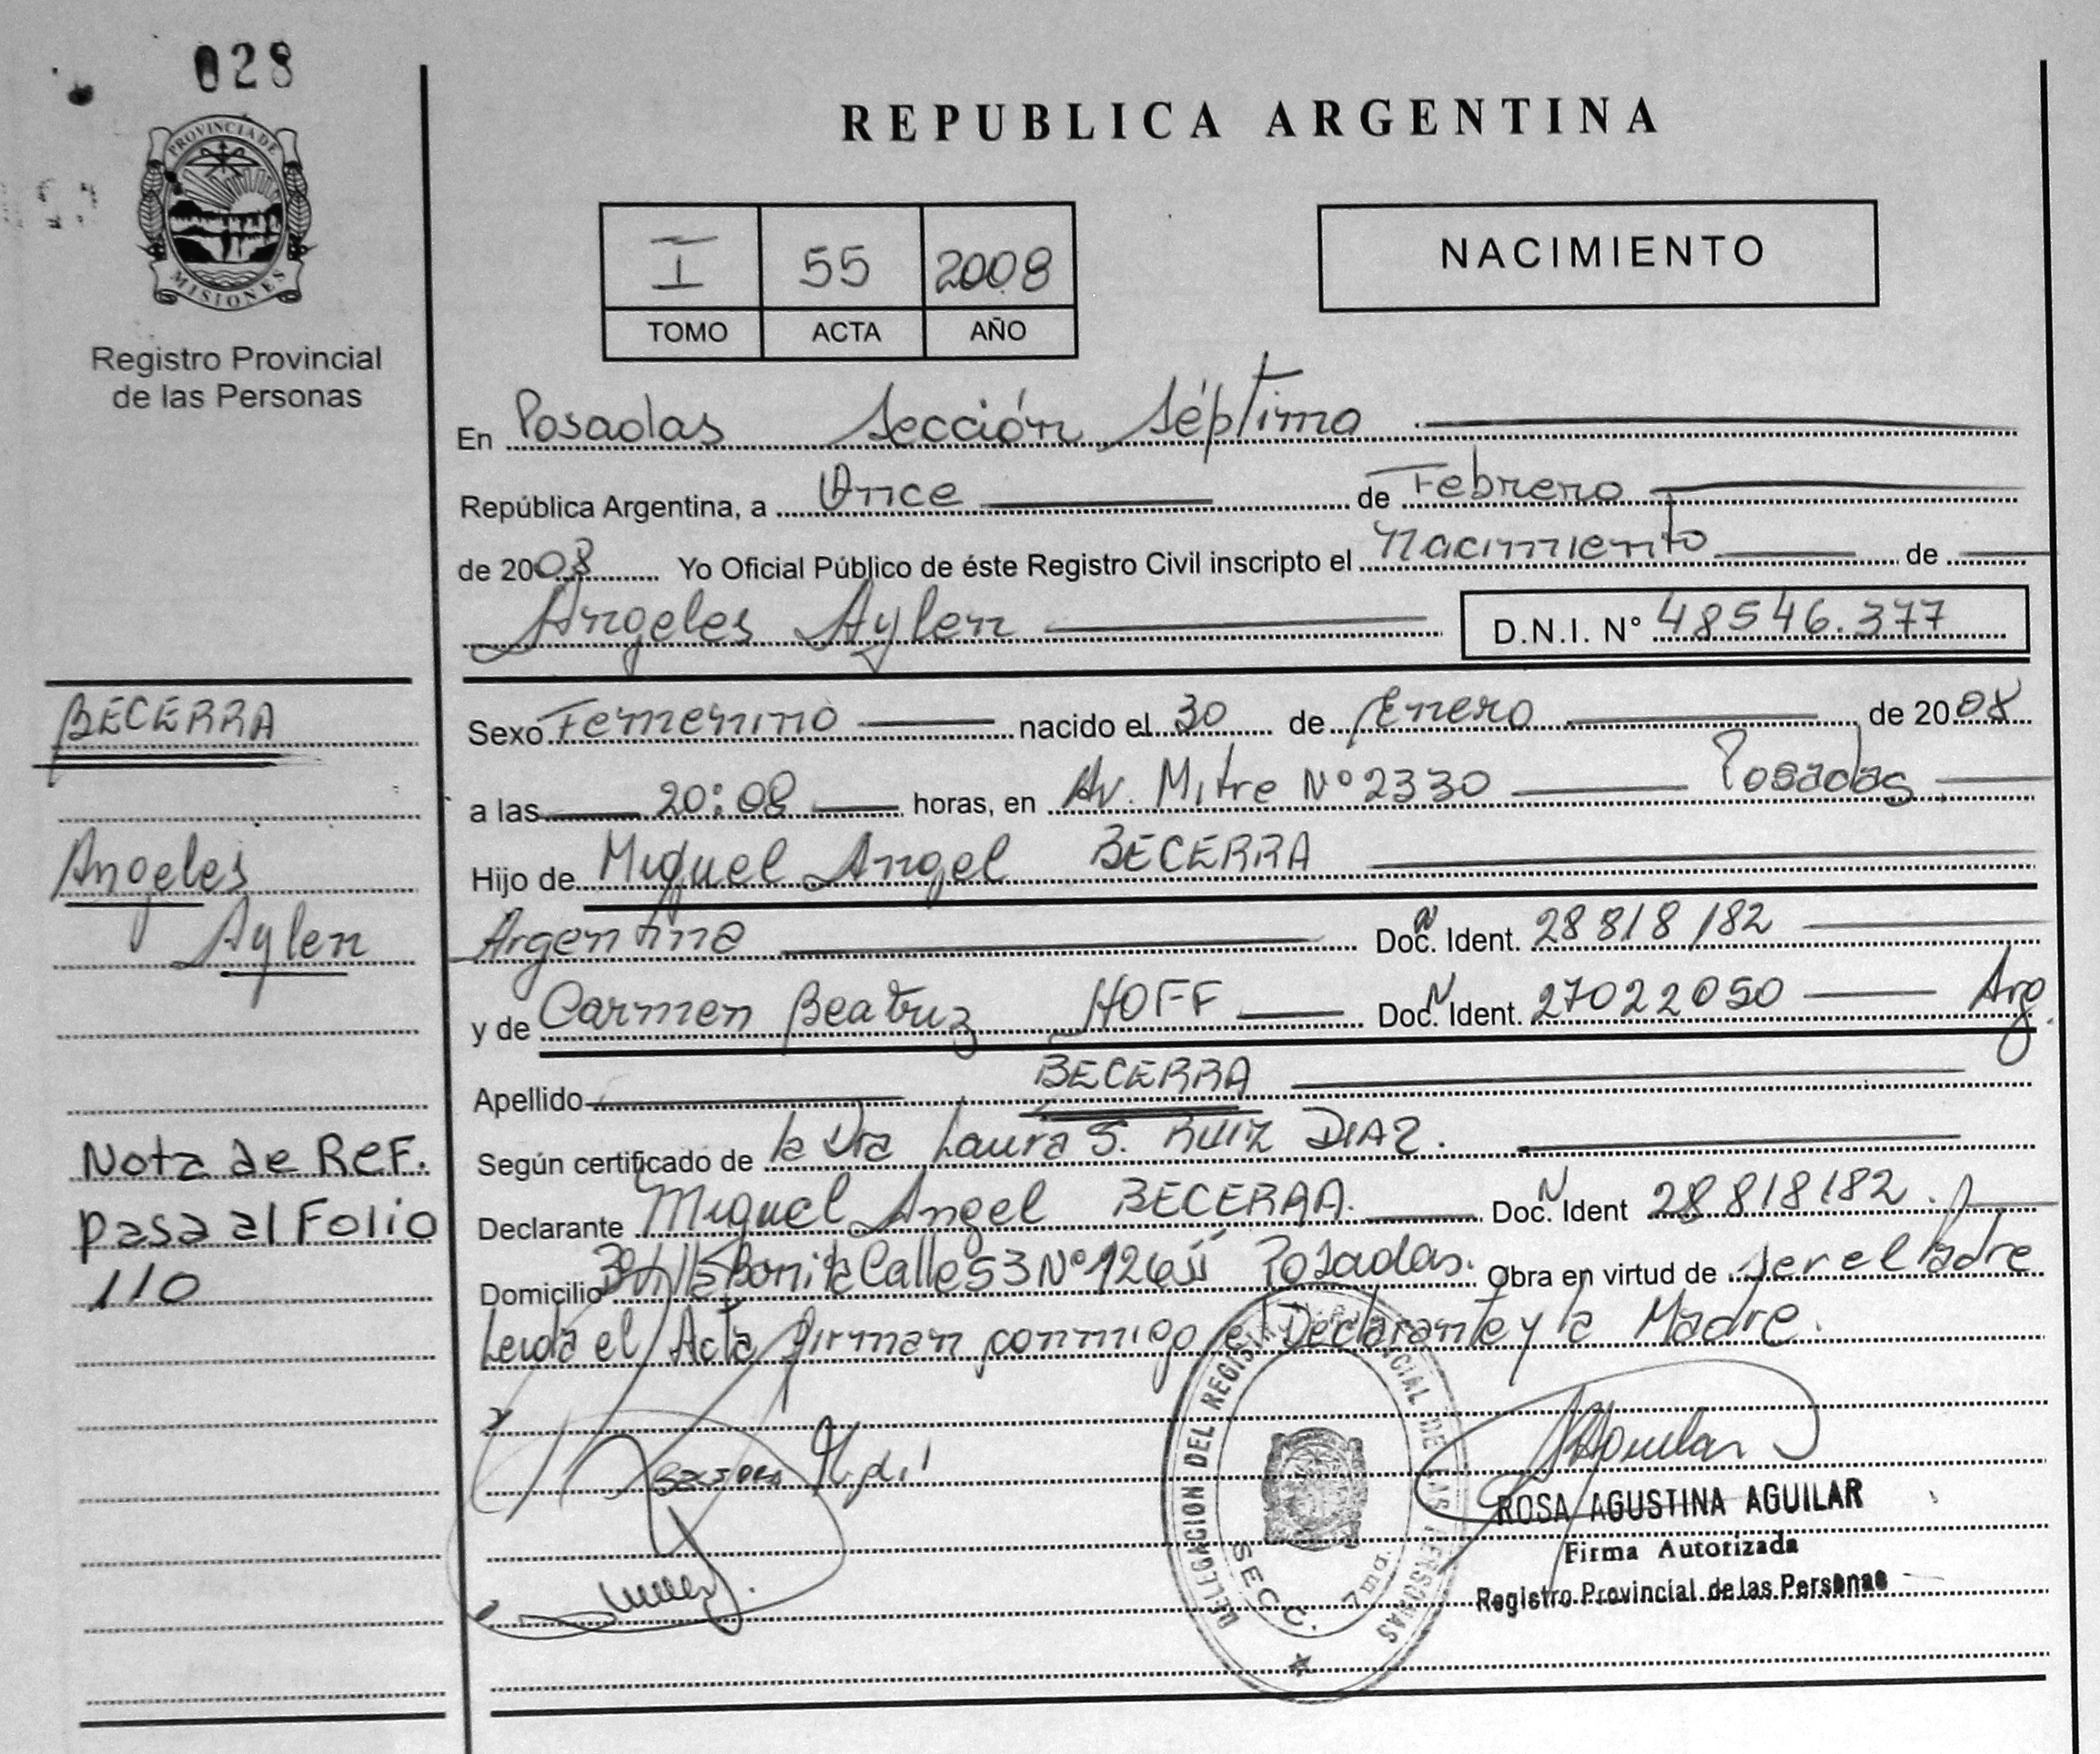 028
PROVINCIA DE
MISIONES
Registro Provincial
de las Personas
REPUBLICA ARGENTINA
I 55 2008
TOMO ACTA AÑO
NACIMIENTO
En Posadas Sección Séptima
República Argentina, a Once de Febrero
de 2008 Yo Oficial Público de éste Registro Civil inscripto el Nacimiento de
Angeles Aylen D.N.I. Nº 48546.377
BECERRA
Angeles
Aylen
Nota de REF.
pasa al Folio
110
Sexo Femenino nacido el 30 de Enero de 2008
a las 20:08 horas, en Av. Mitre Nº 2330 Posadas
Hijo de Miguel Angel BECERRA
Argentina Doc. Ident. 28818182
y de Carmen Beatriz HOFF Doc. Ident. 27022050 Arg.
Apellido BECERRA
Según certificado de la Dra Laura S. RUIZ DIAZ.
Declarante Miguel Angel BECERRA. Doc. Ident 28818182.
Domicilio Bonita Calle 53 Nº Posadas. Obra en virtud de ser el Padre
Leida el Acta firman conmigo el Declarante y la Madre.
DELEGACION DEL REGISTRO PROVINCIAL DE LAS PERSONAS
SECC. 7ma
ROSA AGUSTINA AGUILAR
Firma Autorizada
Registro Provincial de las Personas